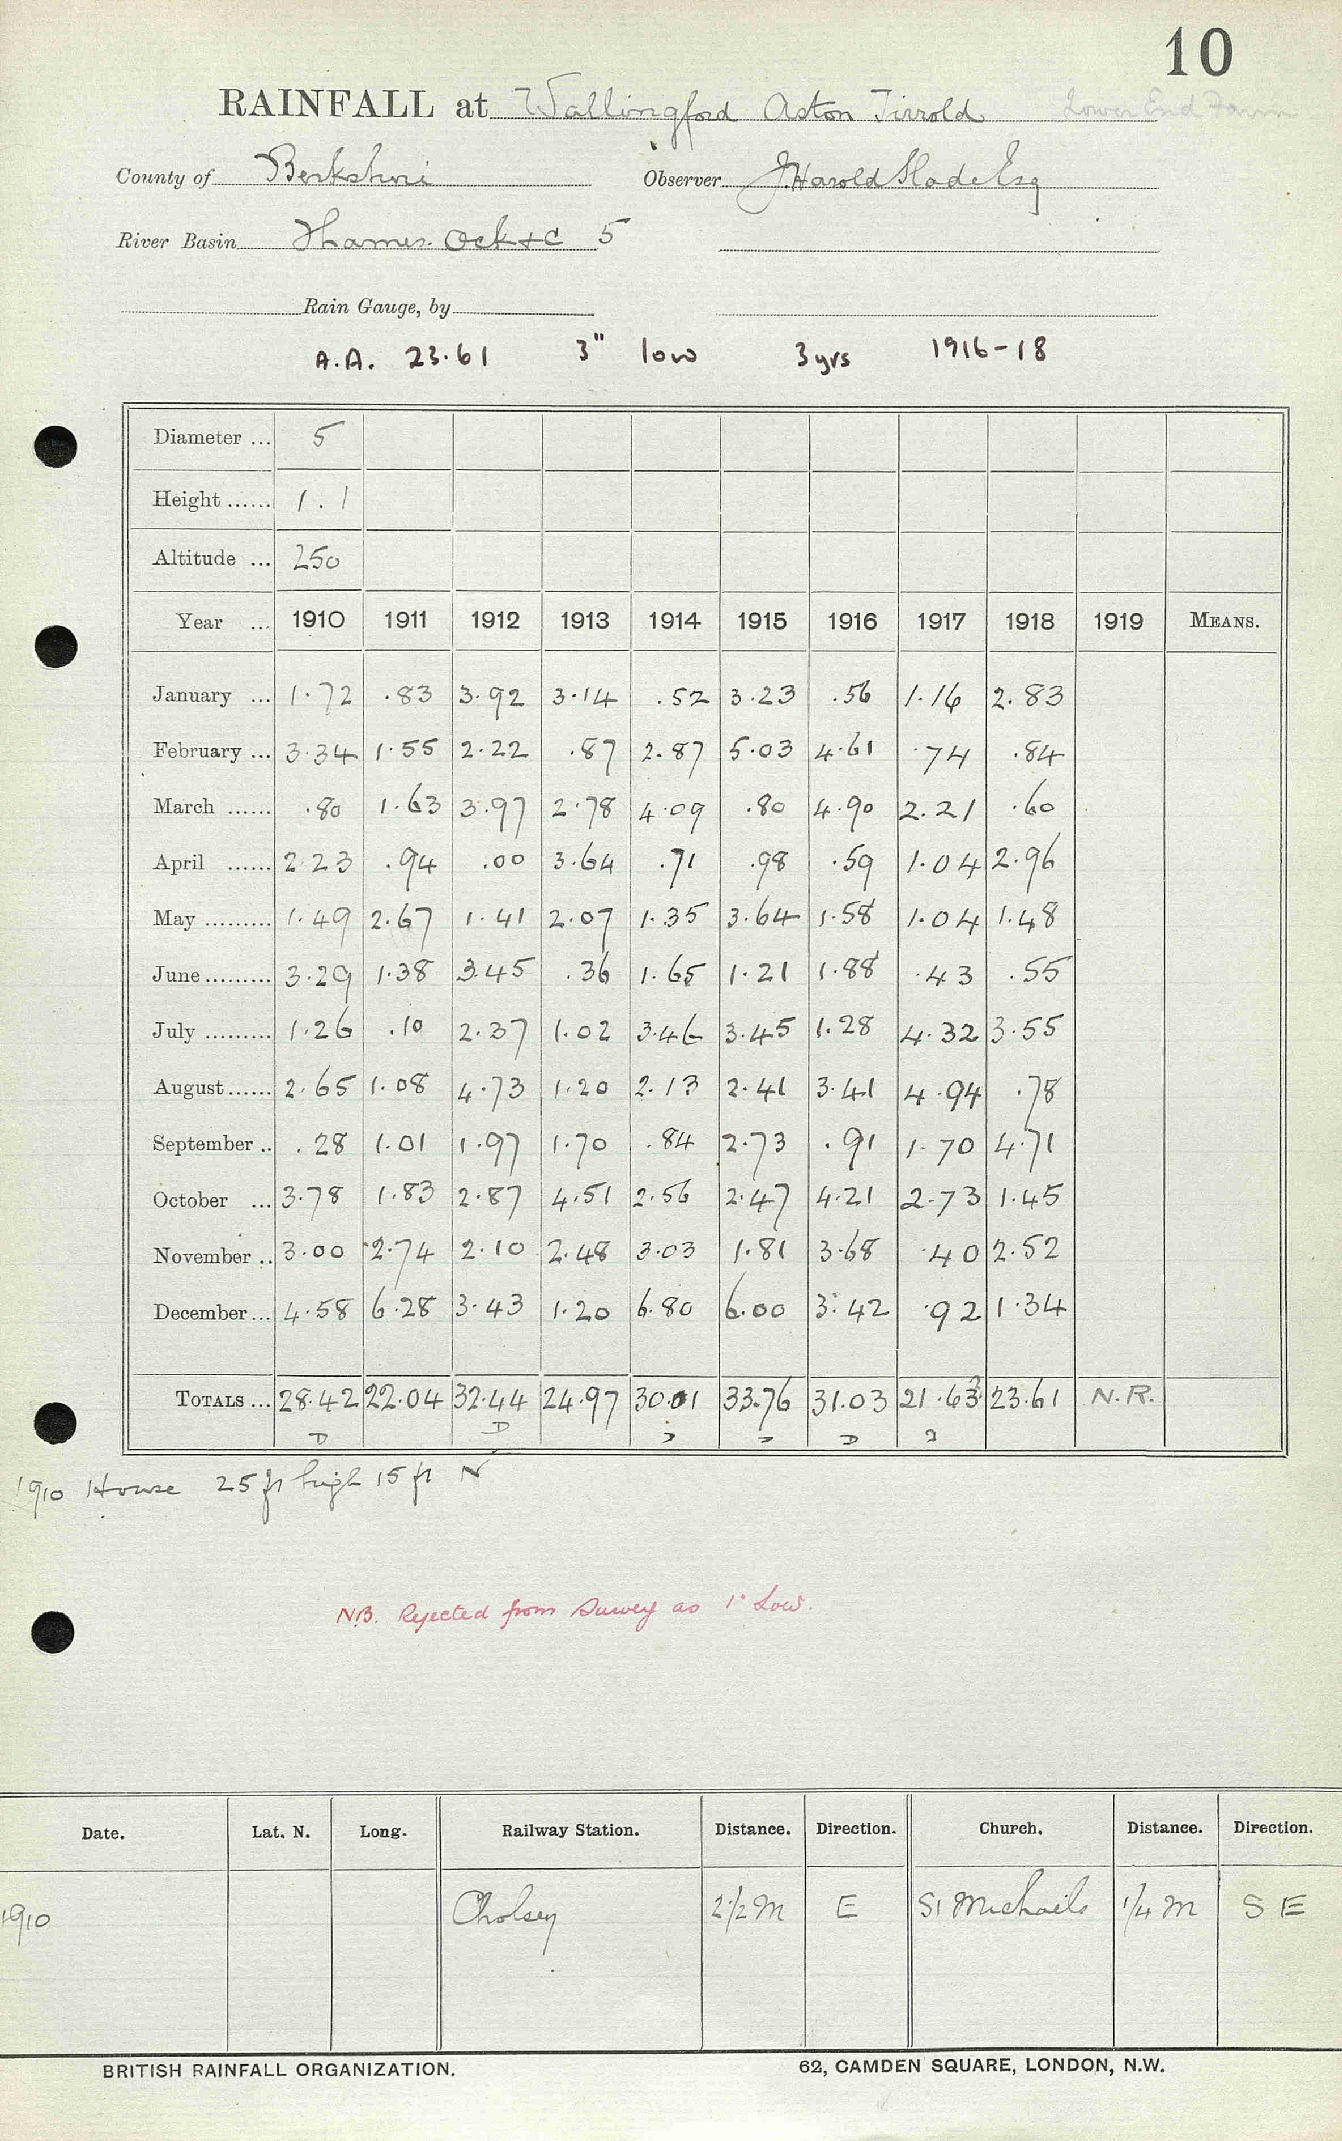 10
RAINFALL at Wallingford Aston Tirrold Lower End Farm
County of Berkshire Observer J. Harold Slade Esq
River Basin Thames. Ock &c 5
Rain Gauge, by
A.A. 23.61 3" low 3 yrs 1916-18
Diameter ... 5
Height ...... 1.1
Altitude ... 250
Year ... 1910 1911 1912 1913 1914 1915 1916 1917 1918 1919 MEANS.
January ... 1.72 .83 3.92 3.14 .52 3.23 .56 1.16 2.83
February ... 3.34 1.55 2.22 .87 2.87 5.03 4.61 .74 .84
March ...... .80 1.63 3.97 2.78 4.09 .80 4.90 2.21 .60
April ...... 2.23 .94 .00 3.64 .71 .98 .59 1.04 2.96
May ......... 1.49 2.67 1.41 2.07 1.35 3.64 1.58 1.04 1.48
June ......... 3.29 1.38 3.45 .36 1.65 1.21 1.88 .43 .55
July ......... 1.26 .10 2.37 1.02 3.46 3.45 1.28 4.32 3.55
August ...... 2.65 1.08 4.73 1.20 2.13 2.41 3.41 4.94 .78
September .. .28 1.01 1.97 1.70 .84 2.73 .91 1.70 4.71
October ... 3.78 1.83 2.87 4.51 2.56 2.47 4.21 2.73 1.45
November .. 3.00 2.74 2.10 2.48 3.03 1.81 3.68 .40 2.52
December ... 4.58 6.28 3.43 1.20 6.80 6.00 3.42 .92 1.34
TOTALS ... 28.42 22.04 32.44 24.97 30.01 33.76 31.03 21.63 23.61 N.R.
D D D D D D
1910 House 25 ft high 15 ft N
NB. Rejected from Survey as 1" Low.
Date. Lat. N. Long. Railway Station. Distance. Direction. Church. Distance. Direction.
1910 Cholsey 2 1/2 M E St Michaels 1/4 M S E
BRITISH RAINFALL ORGANIZATION. 62, CAMDEN SQUARE, LONDON, N.W.